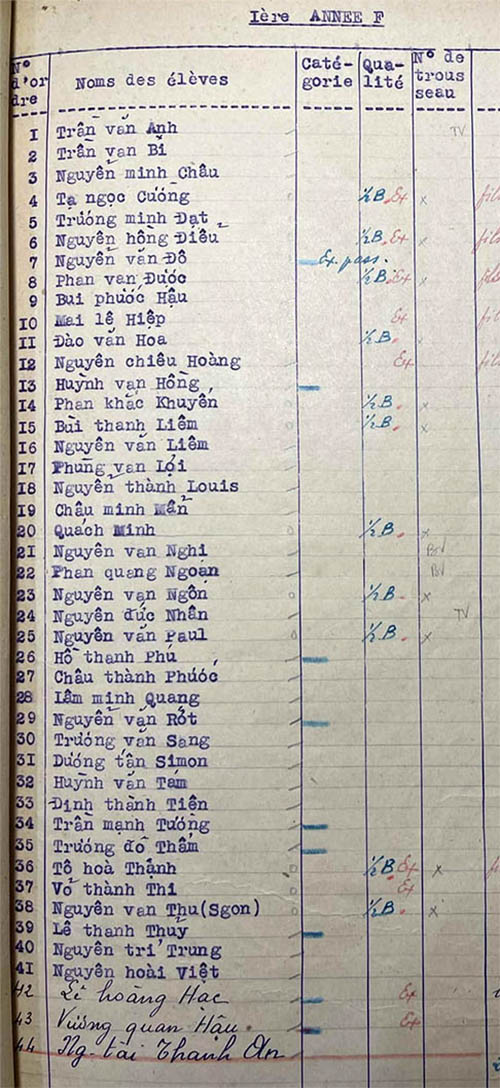 Ière ANNEE F
N° d'ordre Noms des élèves Catégorie Qualité N° de trousseau
1 Trần văn Anh TV
2 Trần vạn Bỉ
3 Nguyễn minh Châu
4 Tạ ngọc Cưòng ½B. Ex x
5 Trưóng minh Đạt
6 Nguyễn hồng Điểu ½B. Ex x
7 Nguyễn văn Đô Ex. pass.
8 Phan vạn Đưọc ½B. Ex x
9 Bui phưóc Hậu
10 Mai lê Hiệp Ex
11 Đào văn Hoa ½B. x
12 Nguyễn chiêu Hoàng Ex
13 Huỳnh vạn Hồng
14 Phan khắc Khuyến ½B. x
15 Bùi thanh Liêm ½B. x
16 Nguyễn văn Liêm
17 Phùng vạn Lọi
18 Nguyễn thành Louis
19 Châu minh Mẫn
20 Quách Minh ½B. x
21 Nguyễn vạn Nghi BV
22 Phan quang Ngoạn BV
23 Nguyễn vạn Ngôn ½B. x
24 Nguyễn đưc Nhân TV
25 Nguyễn văn Paul ½B. x
26 Hồ thanh Phú
27 Châu thành Phưóc
28 Lâm minh Quang
29 Nguyễn văn Rót
30 Trưóng văn Sang
31 Dưóng tấn Simon
32 Huỳnh văn Tám
33 Đinh thành Tiên
34 Trần mạnh Tưóng
35 Trưóng đồ Thẩm
36 Tô hoà Thạnh ½B. Ex x
37 Võ thành Thi Ex
38 Nguyễn vạn Thu(Sgon) ½B. x
39 Lê thanh Thuỷ
40 Nguyễn tri Trung
41 Nguyễn hoài Việt
42 Lê hoàng Hạc Ex
43 Vương quan Hậu. Ex
44 Ng. tài Thanh An